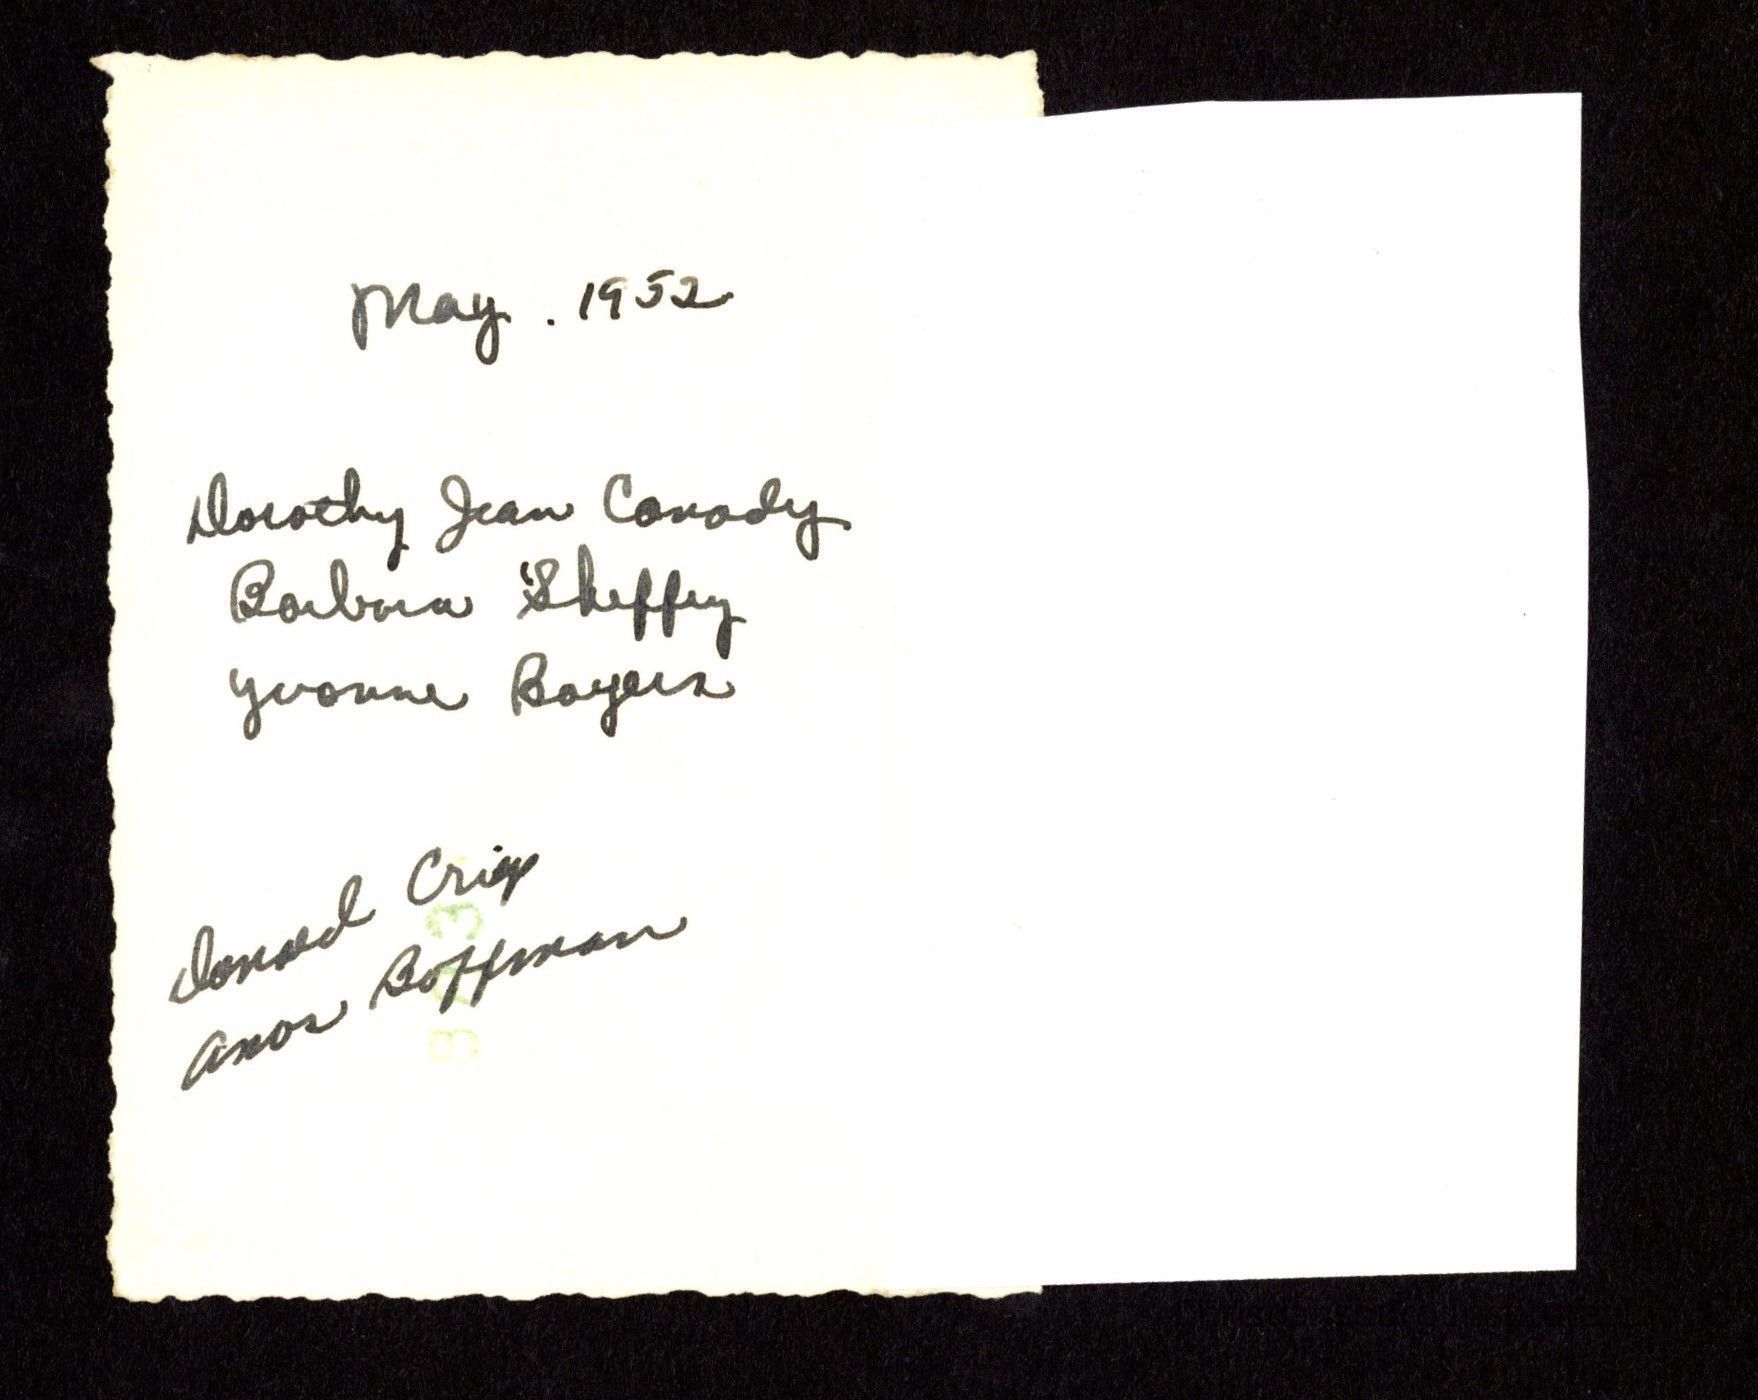 May. 1952
Dorothy Jean Canady
Barbara Sheffey
Yvonne Bayers
Donald Crisp
Amos Boffman